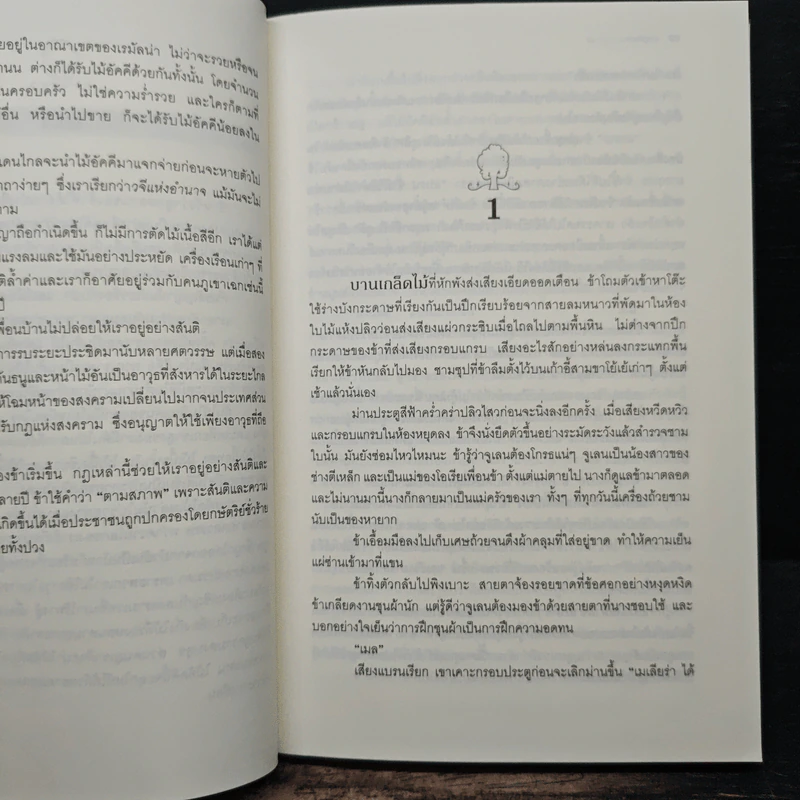 ยอยู่ในอาณาเขตของเรมัลน่า ไม่ว่าจะรวยหรือจน
านน ต่างก็ได้รับไม้อัคคีด้วยกันทั้งนั้น โดยจำนวน
นครอบครัว ไม่ใช่ความร่ำรวย และใครก็ตามที่
อื่น หรือนำไปขาย ก็จะได้รับไม้อัคคีน้อยลงใน
แดนไกลจะนำไม้อัคคีมาแจกจ่ายก่อนจะหายตัวไป
าถาง่ายๆ ซึ่งเราเรียกว่าวจีแห่งอำนาจ แม้มันจะไม่
าม
ญาถือกำเนิดขึ้น ก็ไม่มีการตัดไม้เนื้อสีอีก เราได้แต่
แรงลมและใช้มันอย่างประหยัด เครื่องเรือนเก่าๆ ที่
ติล้ำค่าและเราก็อาศัยอยู่ร่วมกับคนภูเขาเฉกเช่นนี้
ปี
พื่อนบ้านไม่ปล่อยให้เราอยู่อย่างสันติ
การรบระยะประชิดมานับหลายศตวรรษ แต่เมื่อสอง
ันธนูและหน้าไม้อันเป็นอาวุธที่สังหารได้ในระยะไกล
ให้โฉมหน้าของสงครามเปลี่ยนไปมากจนประเทศส่วน
รับกฎแห่งสงคราม ซึ่งอนุญาตให้ใช้เพียงอาวุธที่ถือ
องข้าเริ่มขึ้น กฎเหล่านี้ช่วยให้เราอยู่อย่างสันติและ
ลายปี ข้าใช้คำว่า “ตามสภาพ” เพราะสันติและความ
เกิดขึ้นได้เมื่อประชาชนถูกปกครองโดยกษัตริย์ชั่วร้าย
ยทั้งปวง
1
บานเกล็ดไม้ที่หักพังส่งเสียงเอียดออดเตือน ข้าโถมตัวเข้าหาโต๊ะ
ใช้ร่างบังกระดาษที่เรียงกันเป็นปึกเรียบร้อยจากสายลมหนาวที่พัดมาในห้อง
ใบไม้แห้งปลิวว่อนส่งเสียงแผ่วกระซิบเมื่อไถลไปตามพื้นหิน ไม่ต่างจากปึก
กระดาษของข้าที่ส่งเสียงกรอบแกรบ เสียงอะไรสักอย่างหล่นลงกระแทกพื้น
เรียกให้ข้าหันกลับไปมอง ชามซุปที่ข้าลืมตั้งไว้บนเก้าอี้สามขาโย้เย้เก่าๆ ตั้งแต่
เช้าแล้วนั่นเอง
ม่านประตูสีฟ้าคร่ำคร่าปลิวไสวก่อนจะนิ่งลงอีกครั้ง เมื่อเสียงหวีดหวิว
และกรอบแกรบในห้องหยุดลง ข้าจึงนั่งยืดตัวขึ้นอย่างระมัดระวังแล้วสำรวจชาม
ใบนั้น มันยังซ่อมไหวไหมนะ ข้ารู้ว่าจูเลนต้องโกรธแน่ๆ จูเลนเป็นน้องสาวของ
ช่างตีเหล็ก และเป็นแม่ของโอเรียเพื่อนข้า ตั้งแต่แม่ตายไป นางก็ดูแลข้ามาตลอด
และไม่นานมานี้นางก็กลายมาเป็นแม่ครัวของเรา ทั้งๆ ที่ทุกวันนี้เครื่องถ้วยชาม
นับเป็นของหายาก
ข้าเอื้อมมือลงไปเก็บเศษถ้วยจนดึงผ้าคลุมที่ใส่อยู่ขาด ทำให้ความเย็น
แผ่ซ่านเข้ามาที่แขน
ข้าทิ้งตัวกลับไปพิงเบาะ สายตาจ้องรอยขาดที่ข้อศอกอย่างหงุดหงิด
ข้าเกลียดงานชุนผ้านัก แต่รู้ดีว่าจูเลนต้องมองข้าด้วยสายตาที่นางชอบใช้ และ
บอกอย่างใจเย็นว่าการฝึกชุนผ้าเป็นการฝึกความอดทน
“เมล”
เสียงแบรนเรียก เขาเคาะกรอบประตูก่อนจะเลิกม่านขึ้น “เมเลียร่า ได้